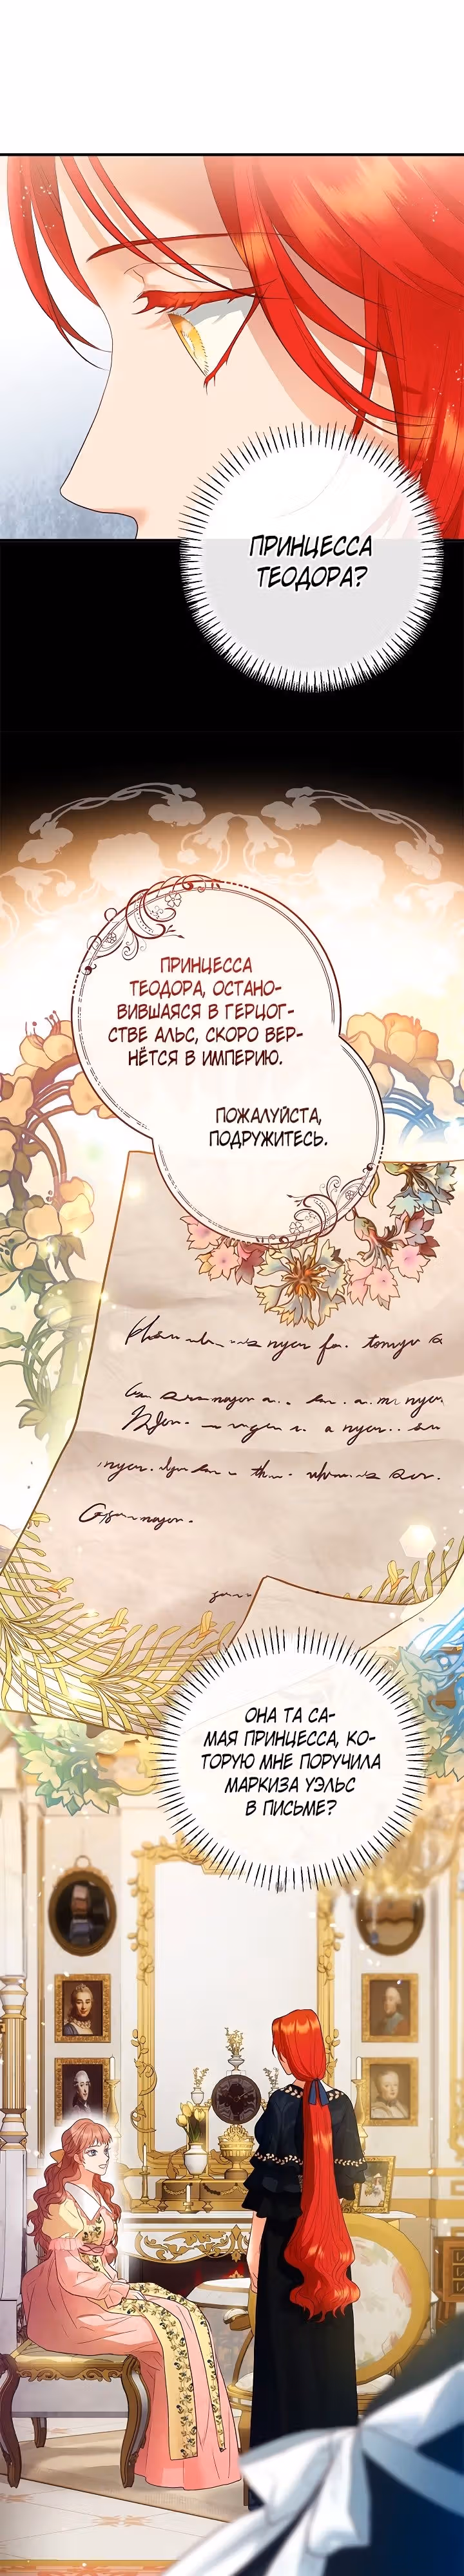 ПРИНЦЕССА
ТЕОДОРА?
ПРИНЦЕССА
ТЕОДОРА, ОСТАНО-
ВИВШАЯСЯ В ГЕРЦОГ-
СТВЕ АЛЬС, СКОРО ВЕР-
НЁТСЯ В ИМПЕРИЮ.
ПОЖАЛУЙСТА,
ПОДРУЖИТЕСЬ.
ОНА ТА СА-
МАЯ ПРИНЦЕССА, КО-
ТОРУЮ МНЕ ПОРУЧИЛА
МАРКИЗА УЭЛЬС
В ПИСЬМЕ?